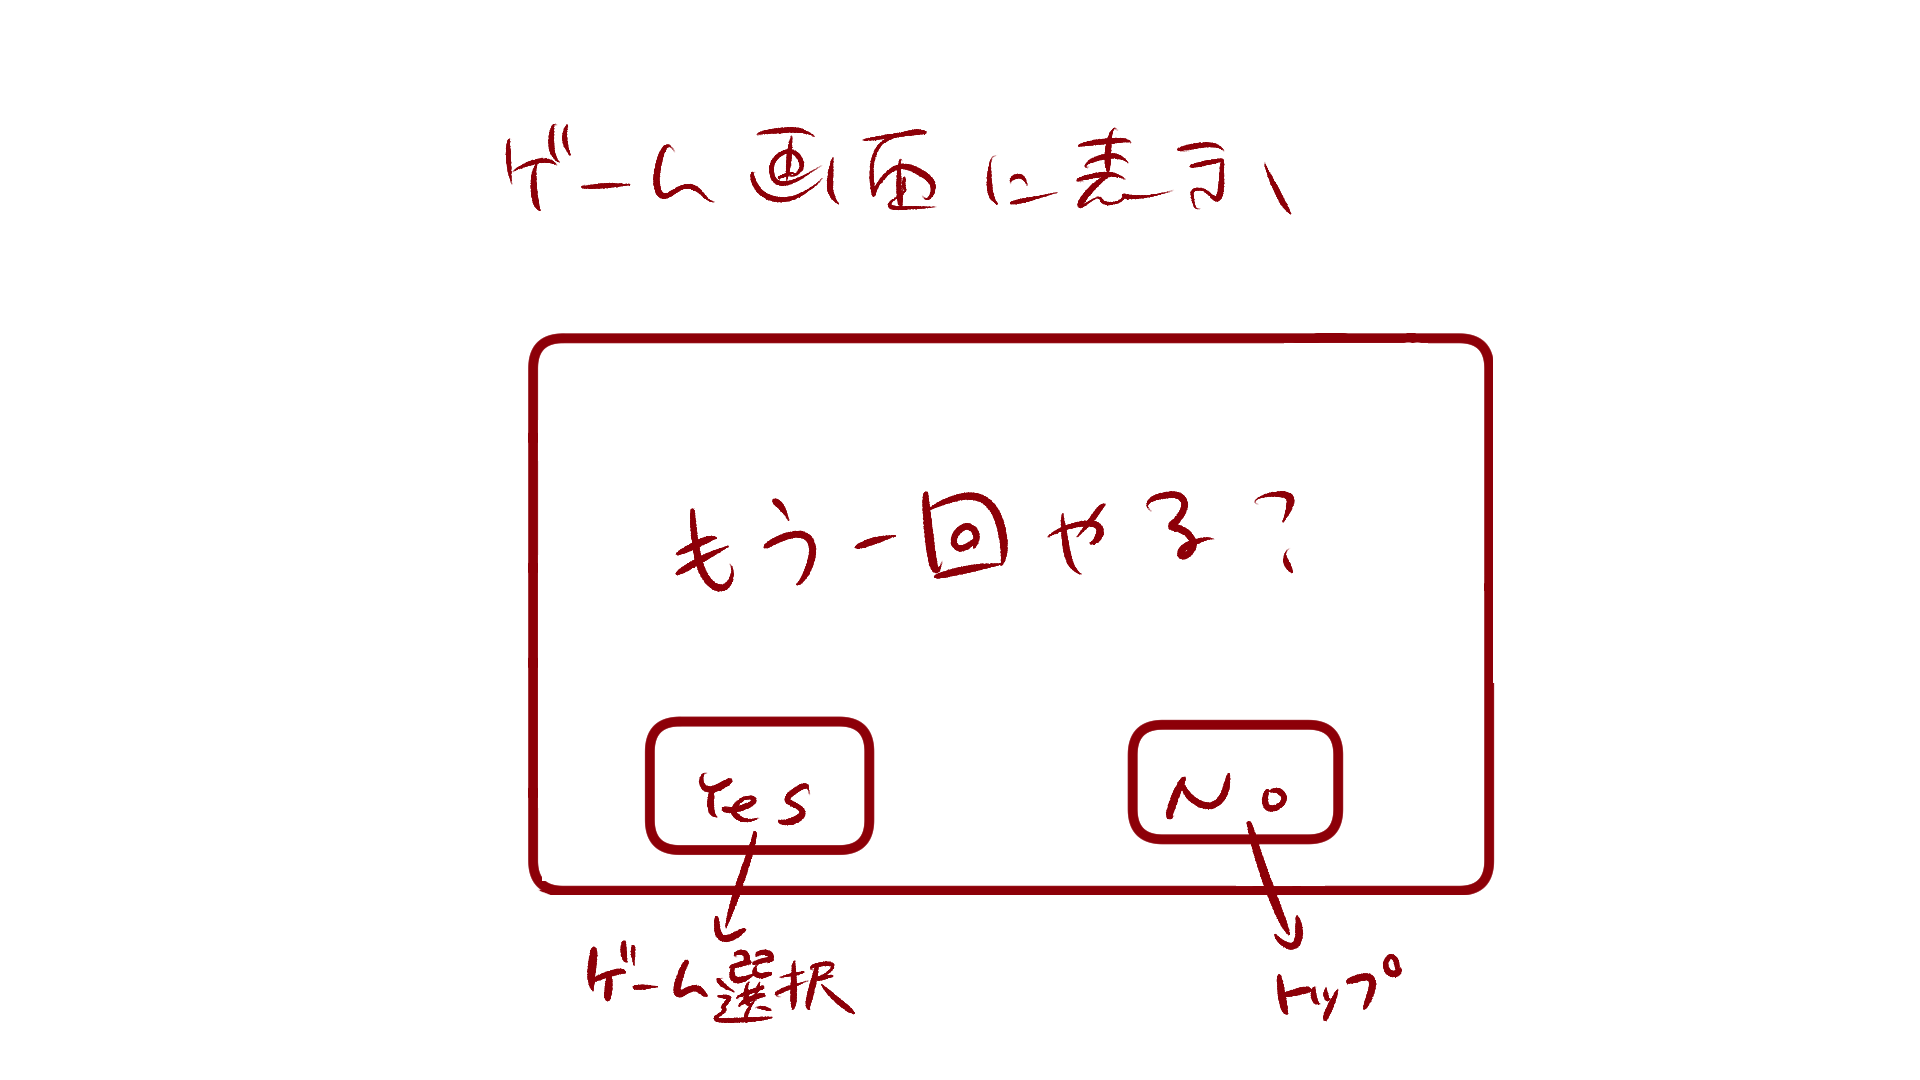 ゲーム画面に表示、
もう一回やる?
Yes
No
ゲーム選択
トップ